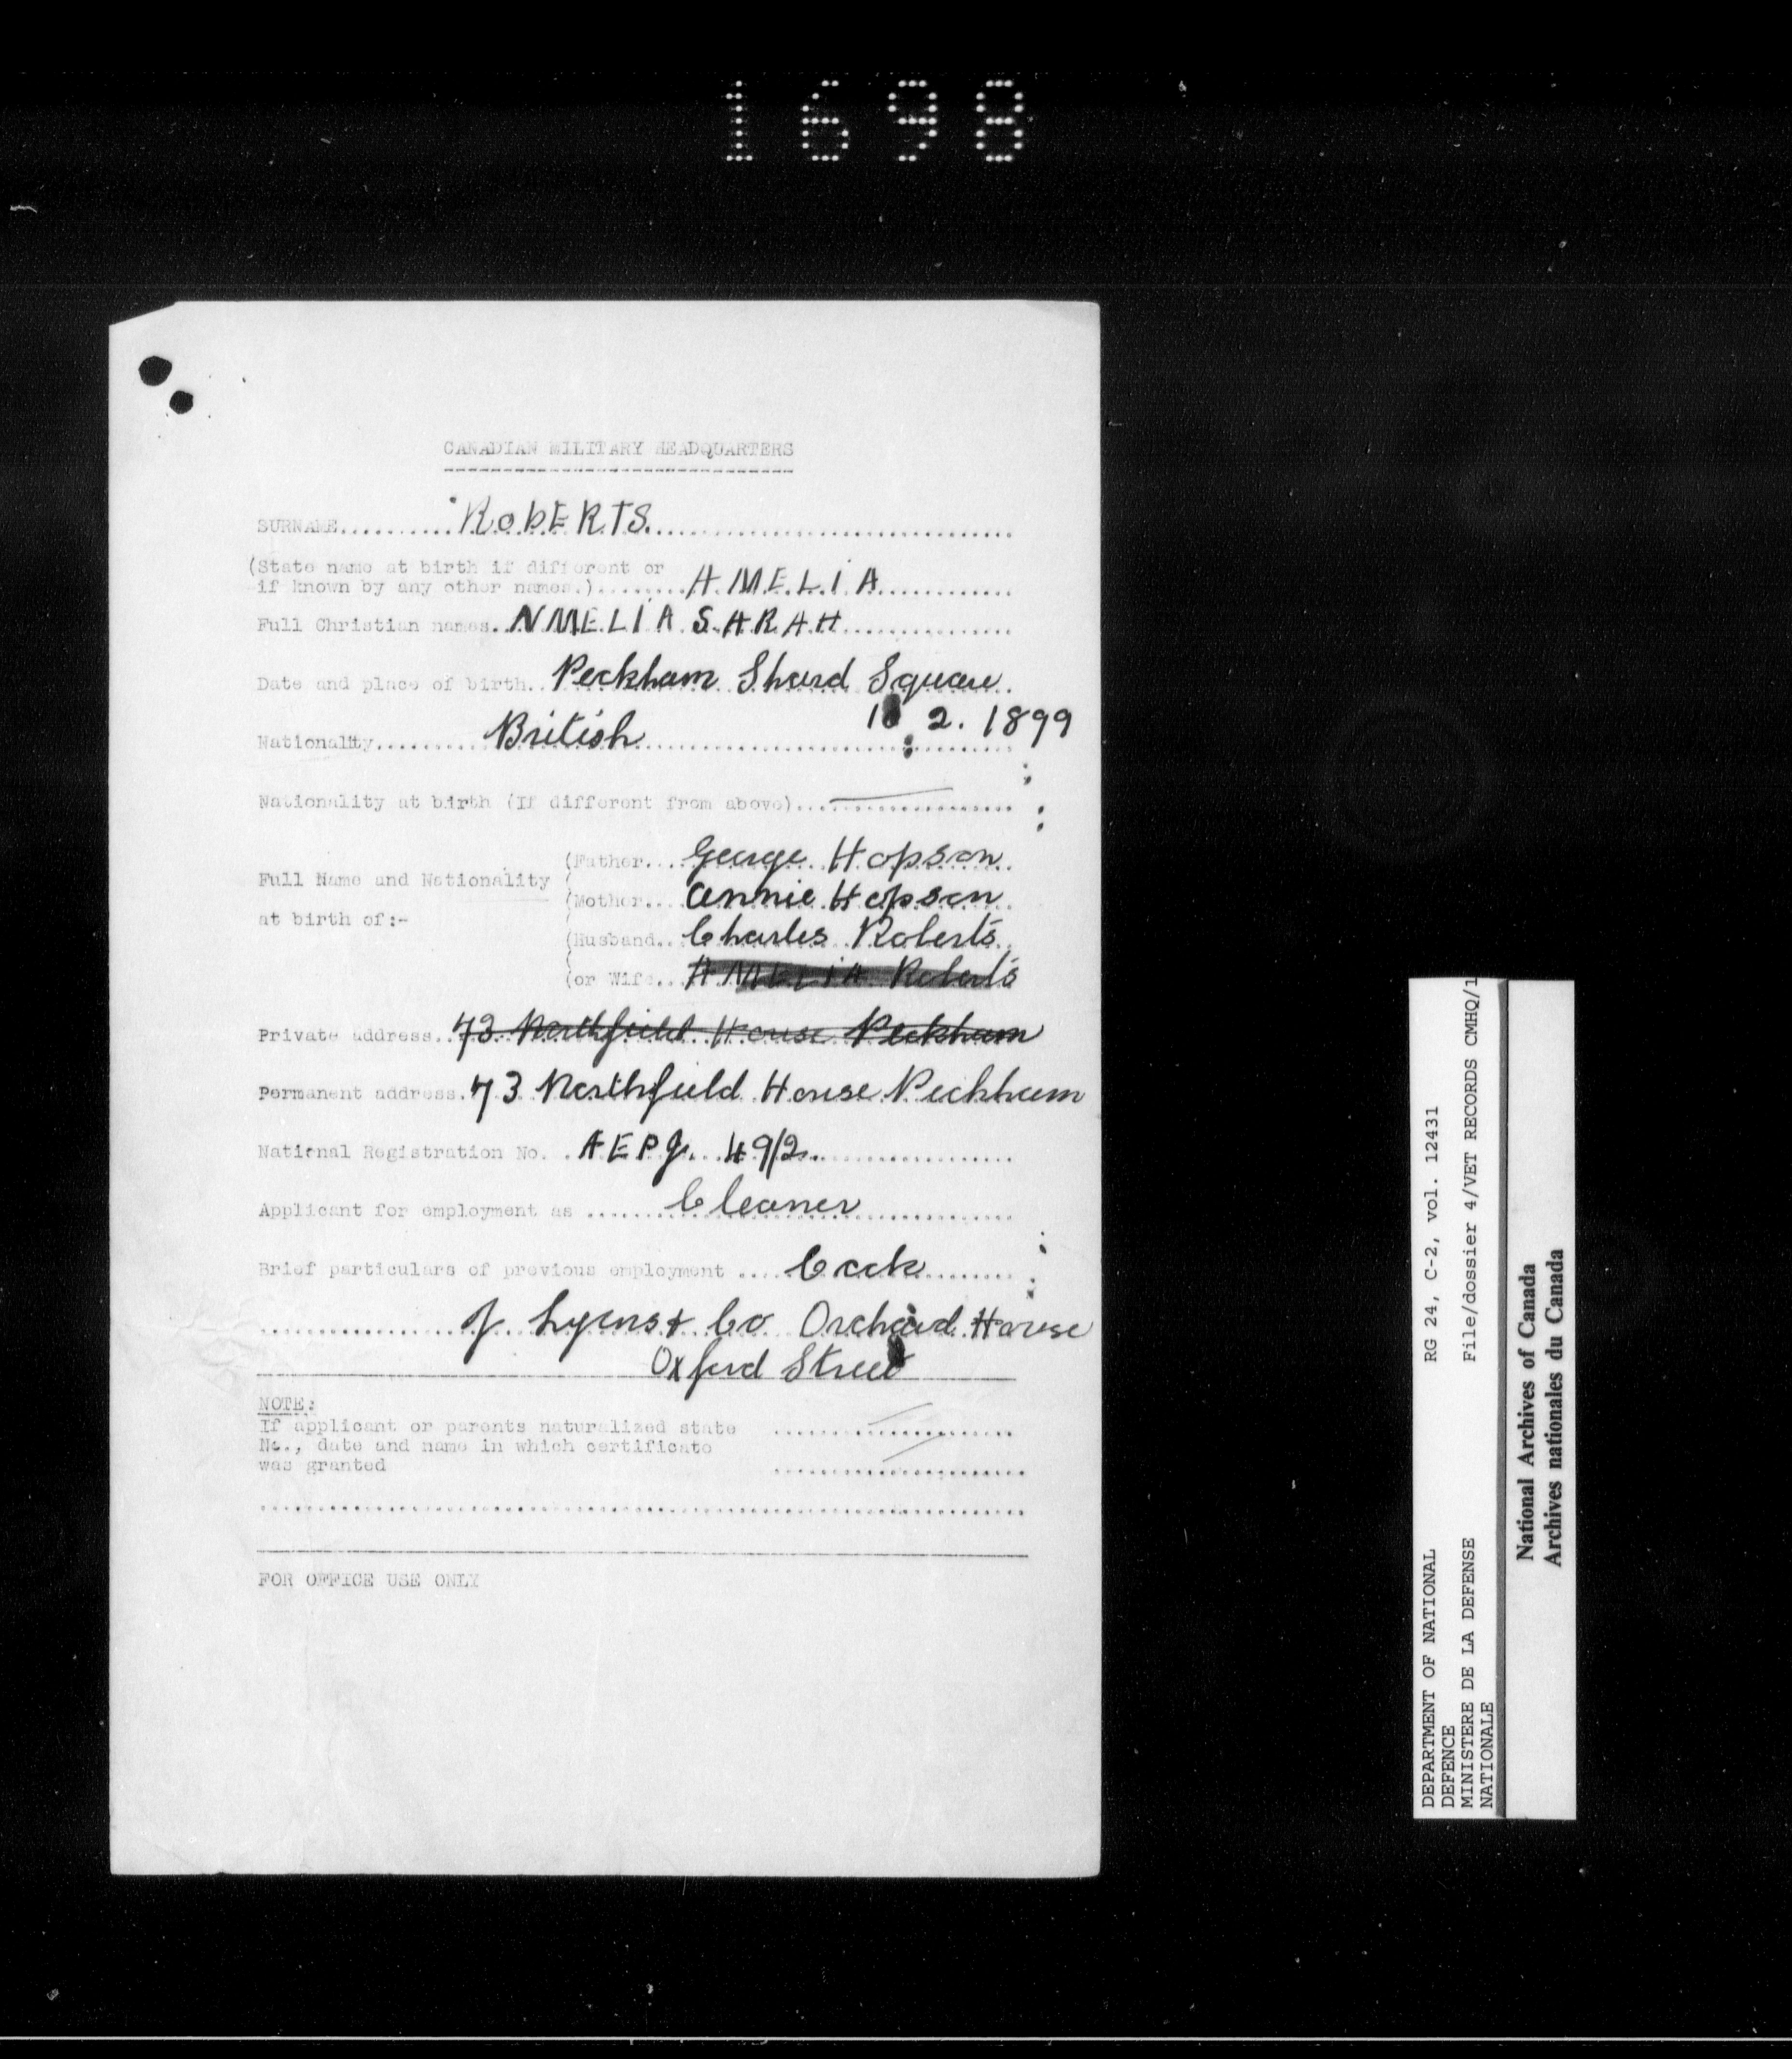 1698
CANADIAN MILITARY HEADQUARTERS
SURNAME..........RoBERTS.
(State name at birth if different or
if known by any other names.).........AMELIA
Full Christian names..NMELIA SARAH
Date and place of birth..Peckham Shard Square.
10 2. 1899
Nationality..........British
Nationality at birth (If different from above)....
(Father....George Hopson
Full Name and Nationality
(Mother....Annie Hopson
at birth of:-
(Husband...Charles Roberts
(or Wife...AMELIA Roberts
Private address..73 Northfield House Peckham
Permanent address.73 Northfield House Peckham
National Registration No. .AEPJ. 49/2.
Applicant for employment as ......Cleaner
Brief particulars of previous employment ....Cook
J. Lyons & Co Orchard House
Oxford Street
NOTE:
If applicant or parents naturalized state
No., date and name in which certificate
was granted
FOR OFFICE USE ONLY
DEPARTMENT OF NATIONAL RG 24, C-2, vol. 12431
DEFENCE
MINISTERE DE LA DEFENSE File/dossier 4/VET RECORDS CMHQ/1
NATIONALE
National Archives of Canada
Archives nationales du Canada